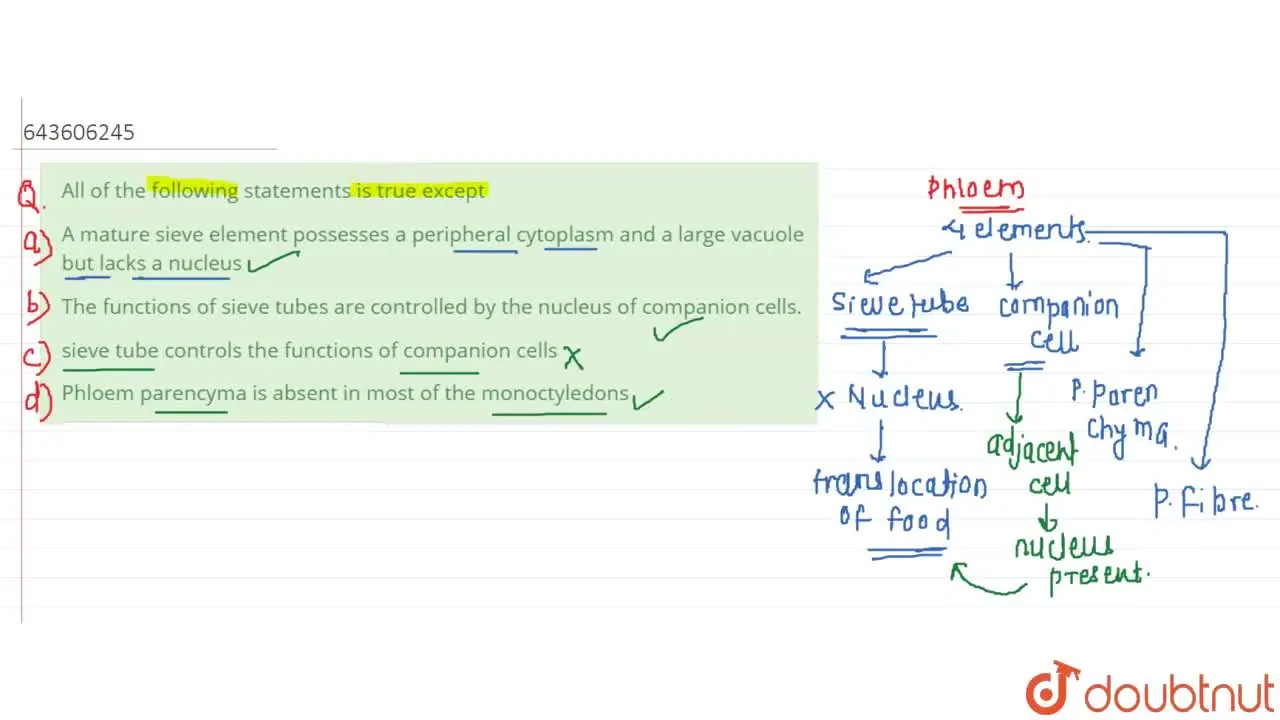 643606245
Q. All of the following statements is true except
a) A mature sieve element possesses a peripheral cytoplasm and a large vacuole
but lacks a nucleus
b) The functions of sieve tubes are controlled by the nucleus of companion cells.
c) sieve tube controls the functions of companion cells x
d) Phloem parencyma is absent in most of the monoctyledons
Phloem
4 elements.
Sieve tube
x Nucleus.
translocation
of food
companion
cell
adjacent
cell
nucleus
present.
P. Paren
chyma.
P. Fibre.
doubtnut